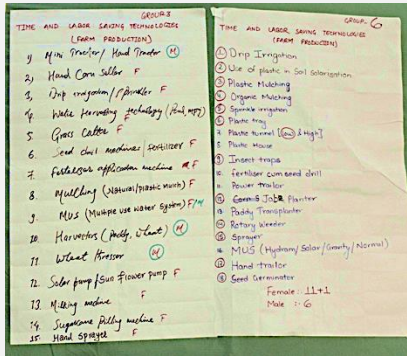 GROUP-3
TIME AND LABOR SAVING TECHNOLOGIES
(FARM PRODUCTION)
1) Mini Tractor / Hand Tractor M
2) Hand Corn Sellar F
3, Drip irrigation / Sprinkler F
4, Water Harvesting technology (Pond,
5. Grass Cutter F
6. Seed drill machines / fertilizer F
7. Fertilizer application machine F
8. Mulching (Natural/plastic mulch) F
9. MUS (Multiple use water System) F/M
10. Harvestors (Paddy, wheat) M
11. Wheat Thressor M
12. Solar pump / Sun flower pump F
13. Milking machine F
14. Sugarcane machine F
15. Hand Sprayer F
GROUP-6
TIME AND LABOR SAVING TECHNOLOGIES
(FARM PRODUCTION)
1 Drip Irrigation
2 Use of plastic in Soil Solarization
3 Plastic Mulching
4 Organic Mulching
5 Sprinkle irrigation
6 Plastic tray
7 Plastic tunnel [Low & High]
8 Plastic House
9 Insect traps
10. fertilizer cum seed drill
11. Power trailor
12 Jab Planter
13 Paddy Transplanter
14 Rotary Weeder
15 Sprayer
16 MUS (Hydram/Solar/Gravity/Normal)
17 Hand trailor
18 Seed Germinator
Female: 11+1
Male : - 6